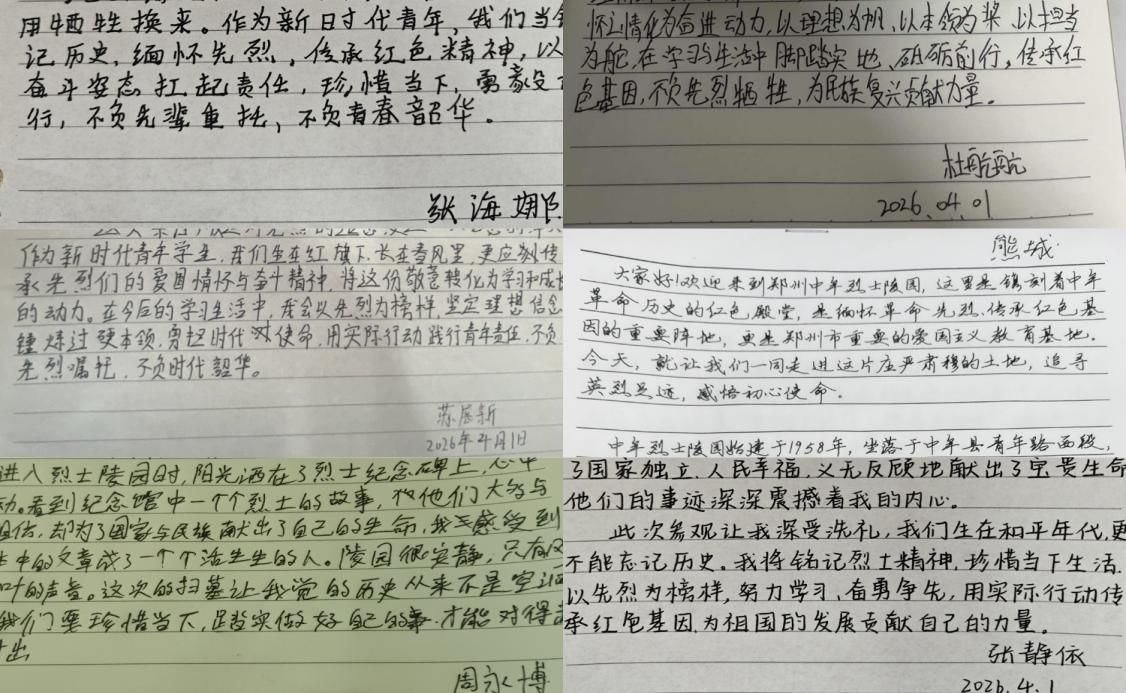 用牺牲换来。作为新时代青年，我们当
记历史，缅怀先烈，传承红色精神，以
奋斗姿态扛起责任，珍惜当下，勇毅
行，不负先辈重托，不负青春韶华。
张海娜
怀之情化为奋进动力，以理想为帆，以本领为桨，以担当
为舵，在学习与生活中脚踏实地、砥砺前行，传承红
色基因，不负先烈牺牲，为民族复兴贡献力量。
杜航航
2026.04.01
作为新时代青年学生，我们生在红旗下，长在春风里，更应刻传
承先烈们的爱国情怀与奋斗精神，将这份敬意转化为学习和成长
的动力。在今后的学习生活中，我会以先烈为榜样，坚定理想信念
锤炼过硬本领，勇担时代使命，用实际行动践行青年责任，不负
先烈嘱托，不负时代韶华。
苏展新
2026年4月1日
熊城
大家好！欢迎来到郑州中牟烈士陵园，这里是镌刻着中牟
革命历史的红色殿堂，是缅怀革命先烈、传承红色基
因的重要阵地，更是郑州市重要的爱国主义教育基地。
今天，就让我们一同走进这片庄严肃穆的土地，追寻
英烈足迹，感悟初心使命。
中牟烈士陵园始建于1958年，坐落于中牟县青年路西段，
进入烈士陵园时，阳光洒在了烈士纪念碑上，心中
动。看到纪念馆中一个个烈士的故事，他们大多与
相仿，却为了国家与民族献出了自己的生命，我感受到
中的文章成了一个个活生生的人。陵园很安静，只有
叶的声音。这次的扫墓让我觉的历史从来不是空
我们要珍惜当下，踏实做好自己的事，才能对得
出
周永博
了国家独立、人民幸福，义无反顾地献出了宝贵生命
他们的事迹深深震撼着我的内心。
此次参观让我深受洗礼，我们生在和平年代，更
不能忘记历史。我将铭记烈士精神，珍惜当下生活，
以先烈为榜样，努力学习、奋勇争先，用实际行动传
承红色基因，为祖国的发展贡献自己的力量。
张静依
2026.4.1